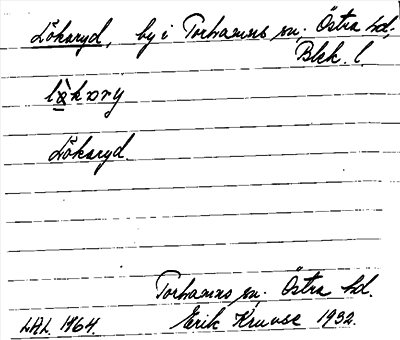 Lökaryd, by i Torhamns sn, Östra hd,
Blek. l.
Lökaryd.
Torhamns sn, Östra hd.
LAL 1964. Erik Kruuse 1932.